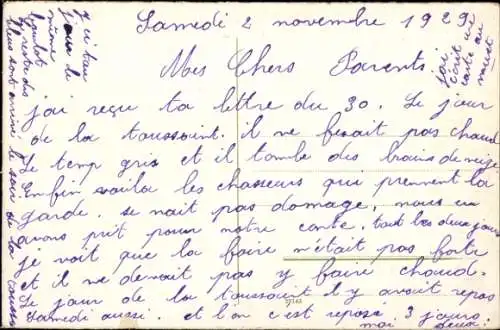 Samedi 2 novembre 1929
Mes Chers Parents
j'ai reçu ta lettre du 30. Le jour
de la toussaint. il ne fesait pas chaud
le temp gris et il tombe des brains de neige
enfin voila les chasseurs qui prennent la
garde. se nait pas domage, nous en
avons prit pour notre conte. tout les deux jours
je voit que la faire n'était pas forte
et il ne devait pas y faire chaud.
Le jour de la toussaint il y avait repos
Samedi aussi. et l'on c'est reposé 3 jours
moi deux
37162
j'ai
écrit une
carte au
jour le
même
sont arrivé le soir de la touss